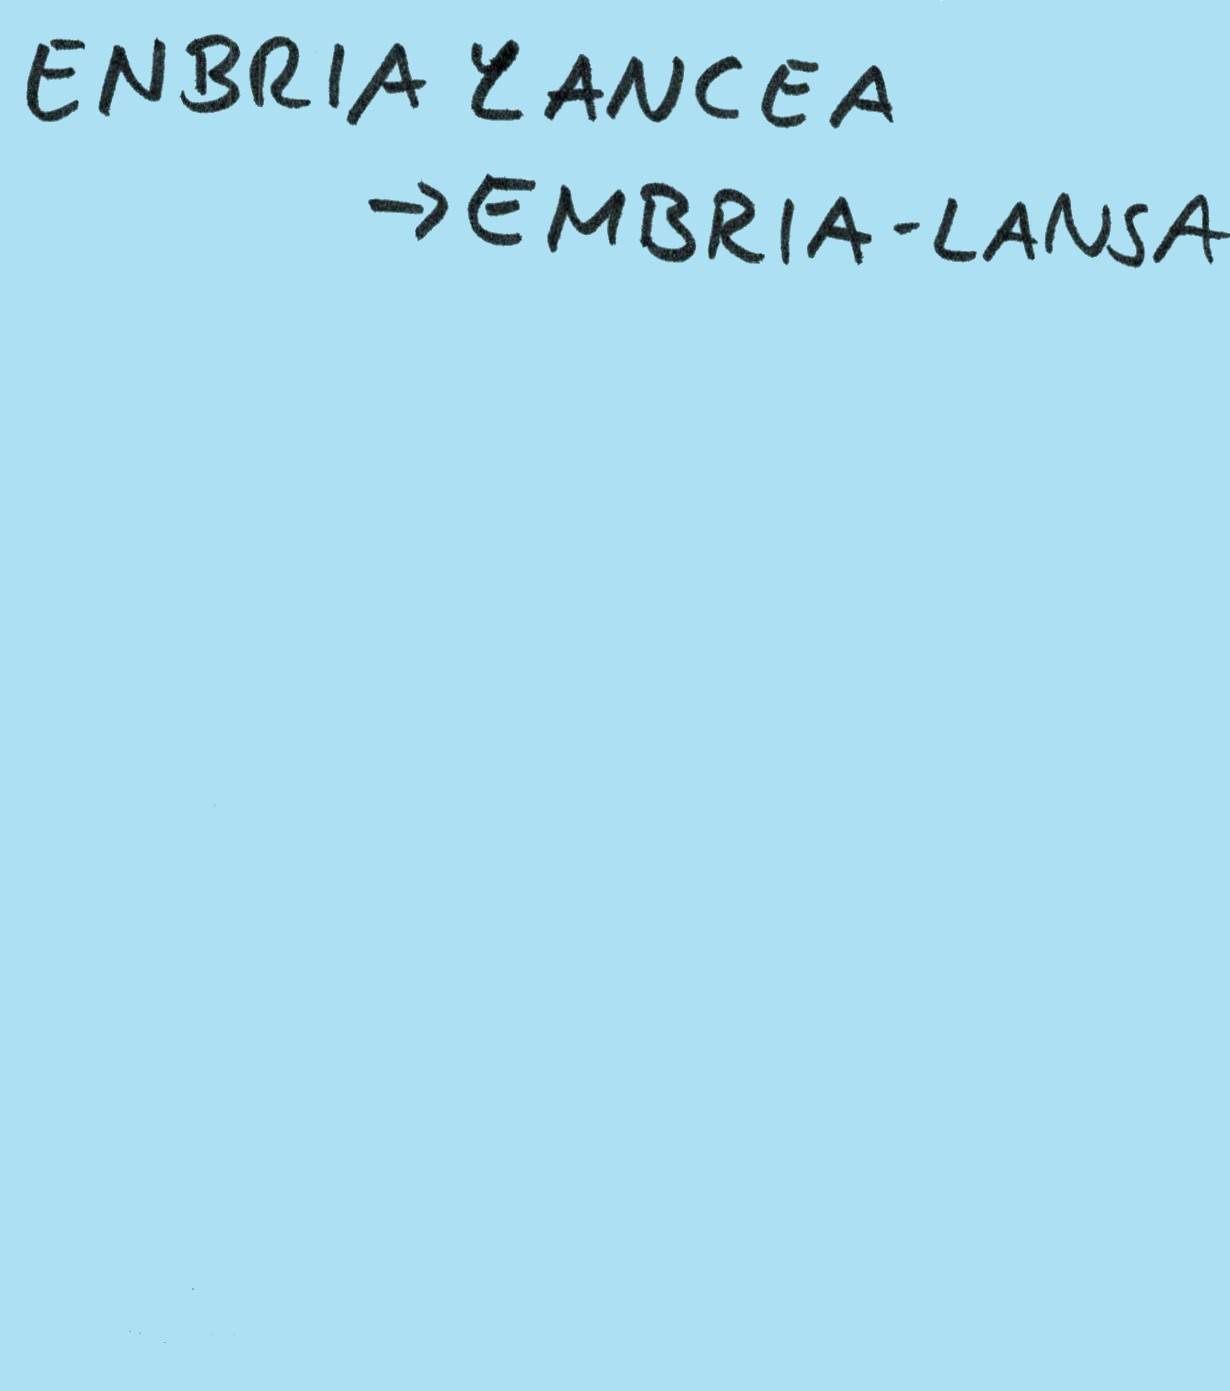 ENBRIA LANCEA
→ EMBRIA-LANSA